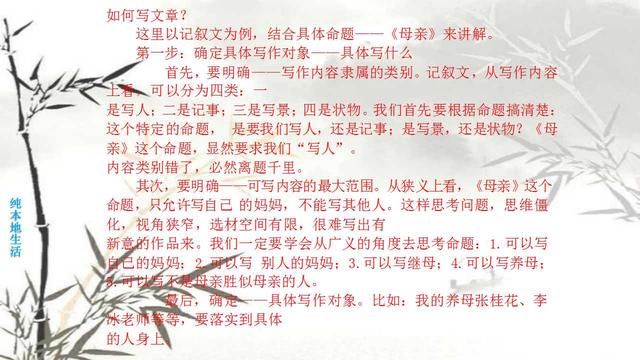 如何写文章?
这里以记叙文为例，结合具体命题——《母亲》来讲解。
第一步：确定具体写作对象——具体写什么
首先，要明确——写作内容隶属的类别。记叙文，从写作内容
上看，可以分为四类：一
是写人；二是记事；三是写景；四是状物。我们首先要根据命题搞清楚：
这个特定的命题， 是要我们写人，还是记事；是写景，还是状物？《母
亲》这个命题，显然要求我们“写人”。
内容类别错了，必然离题千里。
其次，要明确——可写内容的最大范围。从狭义上看，《母亲》这个
命题，只允许写自己 的妈妈，不能写其他人。这样思考问题，思维僵
化，视角狭窄，选材空间有限，很难写出有
新意的作品来。我们一定要学会从广义的角度去思考命题：1.可以写
自己的妈妈；2.可以写 别人的妈妈；3.可以写继母；4.可以写养母；
5.可以写不是母亲胜似母亲的人。
最后，确定——具体写作对象。比如：我的养母张桂花、李
冰老师等等，要落实到具体
的人身上
纯本地生活